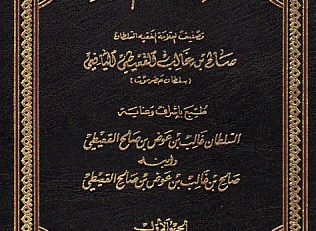 وتصنيف العلامة الفقيه السلطان
صالح بن غالب القعيطي اليافعي
(سلطان حضرموت)
طبع بإشراف وعناية
السلطان غالب بن عوض بن صالح القعيطي
وابنه
صالح بن غالب بن عوض بن صالح القعيطي
الجزء الأول